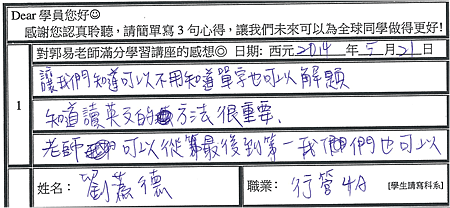 Dear 學員您好☺
感謝您認真聆聽，請簡單寫 3 句心得，讓我們未來可以為全球同學做得更好!
對郭易老師滿分學習講座的感想☺ 日期: 西元 2014 年 5 月 21 日
1
讓我們知道可以不用知道單字也可以解題
知道讀英文的方法很重要、
老師 可以從第最後到第一我們也可以
姓名: 劉蕙德
職業: 行管4A [學生請寫科系]